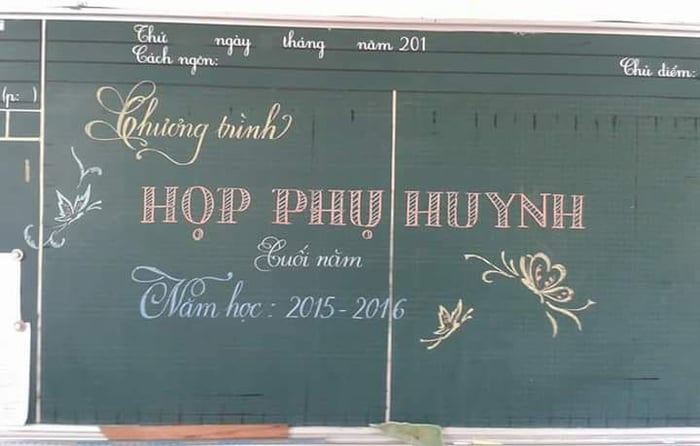 Thứ ngày tháng năm 201
Cách ngôn:
Chủ điểm:
(p: )
Chương trình
HỌP PHỤ HUYNH
Cuối năm
Năm học : 2015 - 2016